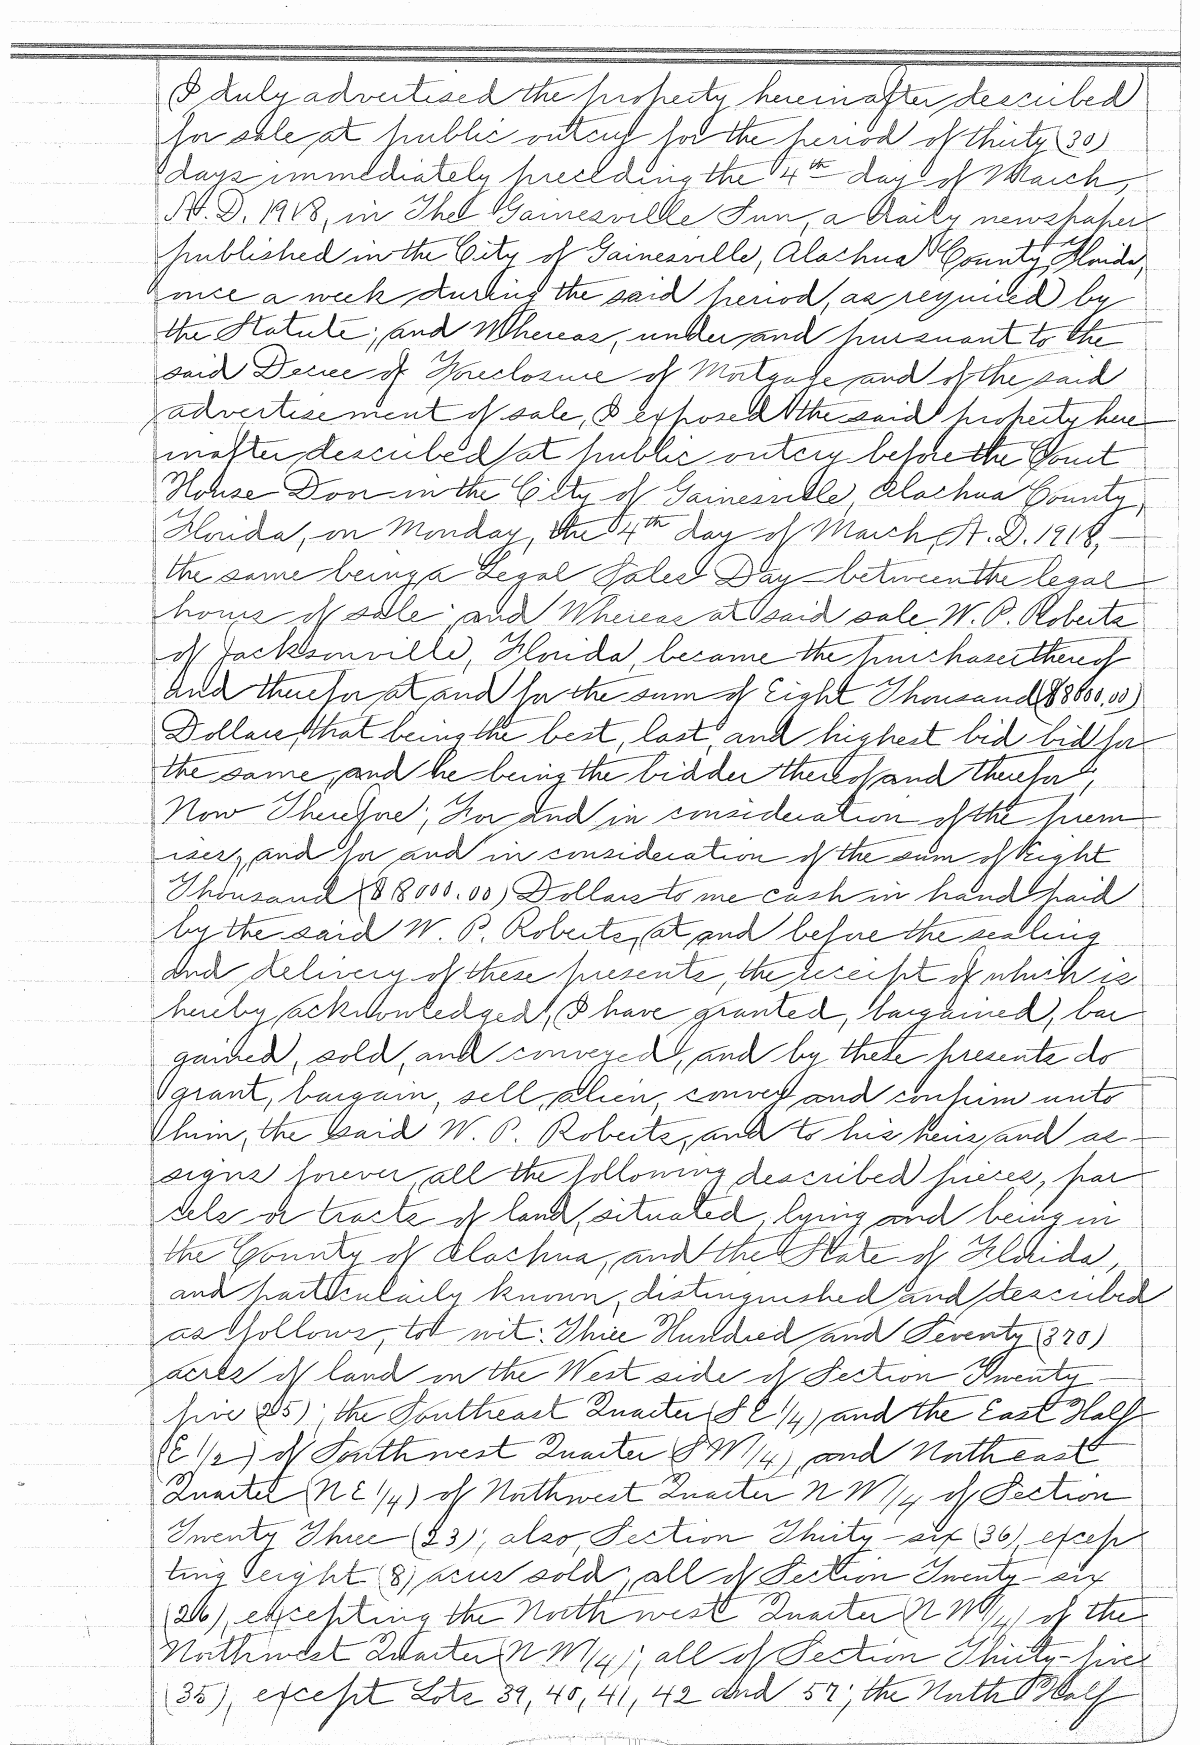 I duly advertised the property hereinafter described
for sale at public outcry for the period of thirty (30)
days immediately preceding the 4th day of March,
A. D. 1918, in The Gainesville Sun, a daily newspaper
published in the City of Gainesville, Alachua County, Florida,
once a week during the said period, as required by
the Statute; and Whereas, under and pursuant to the
said Decree of Foreclosure of Mortgage and of the said
advertisement of sale, I exposed the said property here
inafter described at public outcry before the Court
House Door in the City of Gainesville, Alachua County,
Florida, on Monday, the 4th day of March, A. D. 1918,
the same being a Legal Sales Day between the legal
hours of sale; and Whereas at said sale W. P. Roberts
of Jacksonville, Florida, became the purchaser thereof
and therefor at and for the sum of Eight Thousand ($8000.00)
Dollars, that being the best, last, and highest bid bid for
the same, and he being the bidder thereof and therefor;
Now Therefore; For and in consideration of the prem
ises, and for and in consideration of the sum of Eight
Thousand ($8000.00) Dollars to me cash in hand paid
by the said W. P. Roberts, at and before the sealing
and delivery of these presents, the receipt of which is
hereby acknowledged, I have granted, bargained, bar
gained, sold, and conveyed, and by these presents do
grant, bargain, sell, alien, convey and confirm unto
him, the said W. P. Roberts, and to his heirs and as-
signs forever, all the following described pieces, par
sels or tracts of land, situated, lying and being in
the County of Alachua, and the State of Florida,
and particularily known, distinguished and described
as follows, to wit: Three Hundred and Seventy (370)
acres of land on the West side of Section Twenty
five (25); the Southeast Quarter (S E 1/4), and the East Half
(E 1/2) of Southwest Quarter (S W 1/4), and Northeast
Quarter (N E 1/4) of Northwest Quarter N W 1/4 of Section
Twenty Three (23); also, Section Thirty-six (36), excep
ting eight (8) acres sold; all of Section Twenty-six
(26), excepting the Northwest Quarter (N W 1/4) of the
Northwest Quarter (N W 1/4); all of Section Thirty-five
(35), except Lots 39, 40, 41, 42 and 57; the North Half